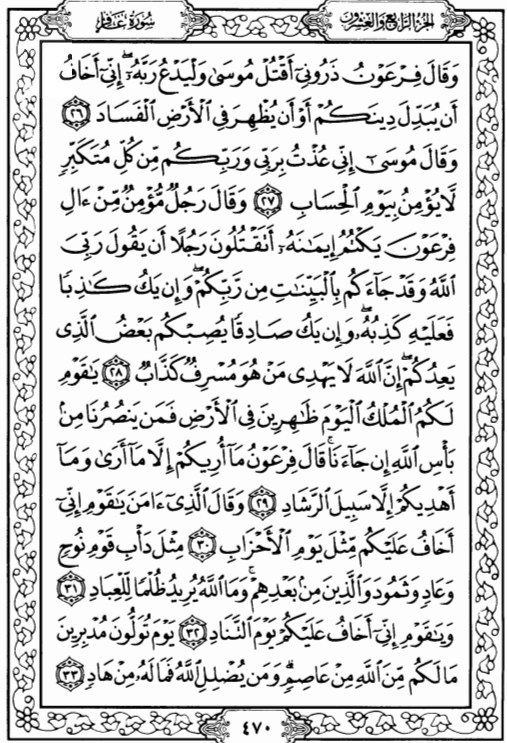 الجزء الرابع والعشرون
سورة غافر
وَقَالَ فِرْعَوْنُ ذَرُونِيٓ أَقْتُلْ مُوسَىٰ وَلْيَدْعُ رَبَّهُۥٓ ۖ إِنِّيٓ أَخَافُ
أَن يُبَدِّلَ دِينَكُمْ أَوْ أَن يُظْهِرَ فِي ٱلْأَرْضِ ٱلْفَسَادَ ٢٦
وَقَالَ مُوسَىٰٓ إِنِّي عُذْتُ بِرَبِّي وَرَبِّكُم مِّن كُلِّ مُتَكَبِّرٍ
لَّا يُؤْمِنُ بِيَوْمِ ٱلْحِسَابِ ٢٧ وَقَالَ رَجُلٌ مُّؤْمِنٌ مِّنْ ءَالِ
فِرْعَوْنَ يَكْتُمُ إِيمَٰنَهُۥٓ أَتَقْتُلُونَ رَجُلًا أَن يَقُولَ رَبِّيَ
ٱللَّهُ وَقَدْ جَآءَكُم بِٱلْبَيِّنَٰتِ مِن رَّبِّكُمْ ۖ وَإِن يَكُ كَٰذِبًا
فَعَلَيْهِ كَذِبُهُۥ ۖ وَإِن يَكُ صَادِقًا يُصِبْكُم بَعْضُ ٱلَّذِي
يَعِدُكُمْ ۖ إِنَّ ٱللَّهَ لَا يَهْدِي مَنْ هُوَ مُسْرِفٌ كَذَّابٌ ٢٨ يَٰقَوْمِ
لَكُمُ ٱلْمُلْكُ ٱلْيَوْمَ ظَٰهِرِينَ فِي ٱلْأَرْضِ فَمَن يَنصُرُنَا مِنۢ
بَأْسِ ٱللَّهِ إِن جَآءَنَا ۚ قَالَ فِرْعَوْنُ مَآ أُرِيكُمْ إِلَّا مَآ أَرَىٰ وَمَآ
أَهْدِيكُمْ إِلَّا سَبِيلَ ٱلرَّشَادِ ٢٩ وَقَالَ ٱلَّذِيٓ ءَامَنَ يَٰقَوْمِ إِنِّيٓ
أَخَافُ عَلَيْكُم مِّثْلَ يَوْمِ ٱلْأَحْزَابِ ٣٠ مِثْلَ دَأْبِ قَوْمِ نُوحٍ
وَعَادٍ وَثَمُودَ وَٱلَّذِينَ مِنۢ بَعْدِهِمْ ۚ وَمَا ٱللَّهُ يُرِيدُ ظُلْمًا لِّلْعِبَادِ ٣١
وَيَٰقَوْمِ إِنِّيٓ أَخَافُ عَلَيْكُمْ يَوْمَ ٱلتَّنَادِ ٣٢ يَوْمَ تُوَلُّونَ مُدْبِرِينَ
مَا لَكُم مِّنَ ٱللَّهِ مِنْ عَاصِمٍ ۗ وَمَن يُضْلِلِ ٱللَّهُ فَمَا لَهُۥ مِنْ هَادٍ ٣٣
٤٧٠